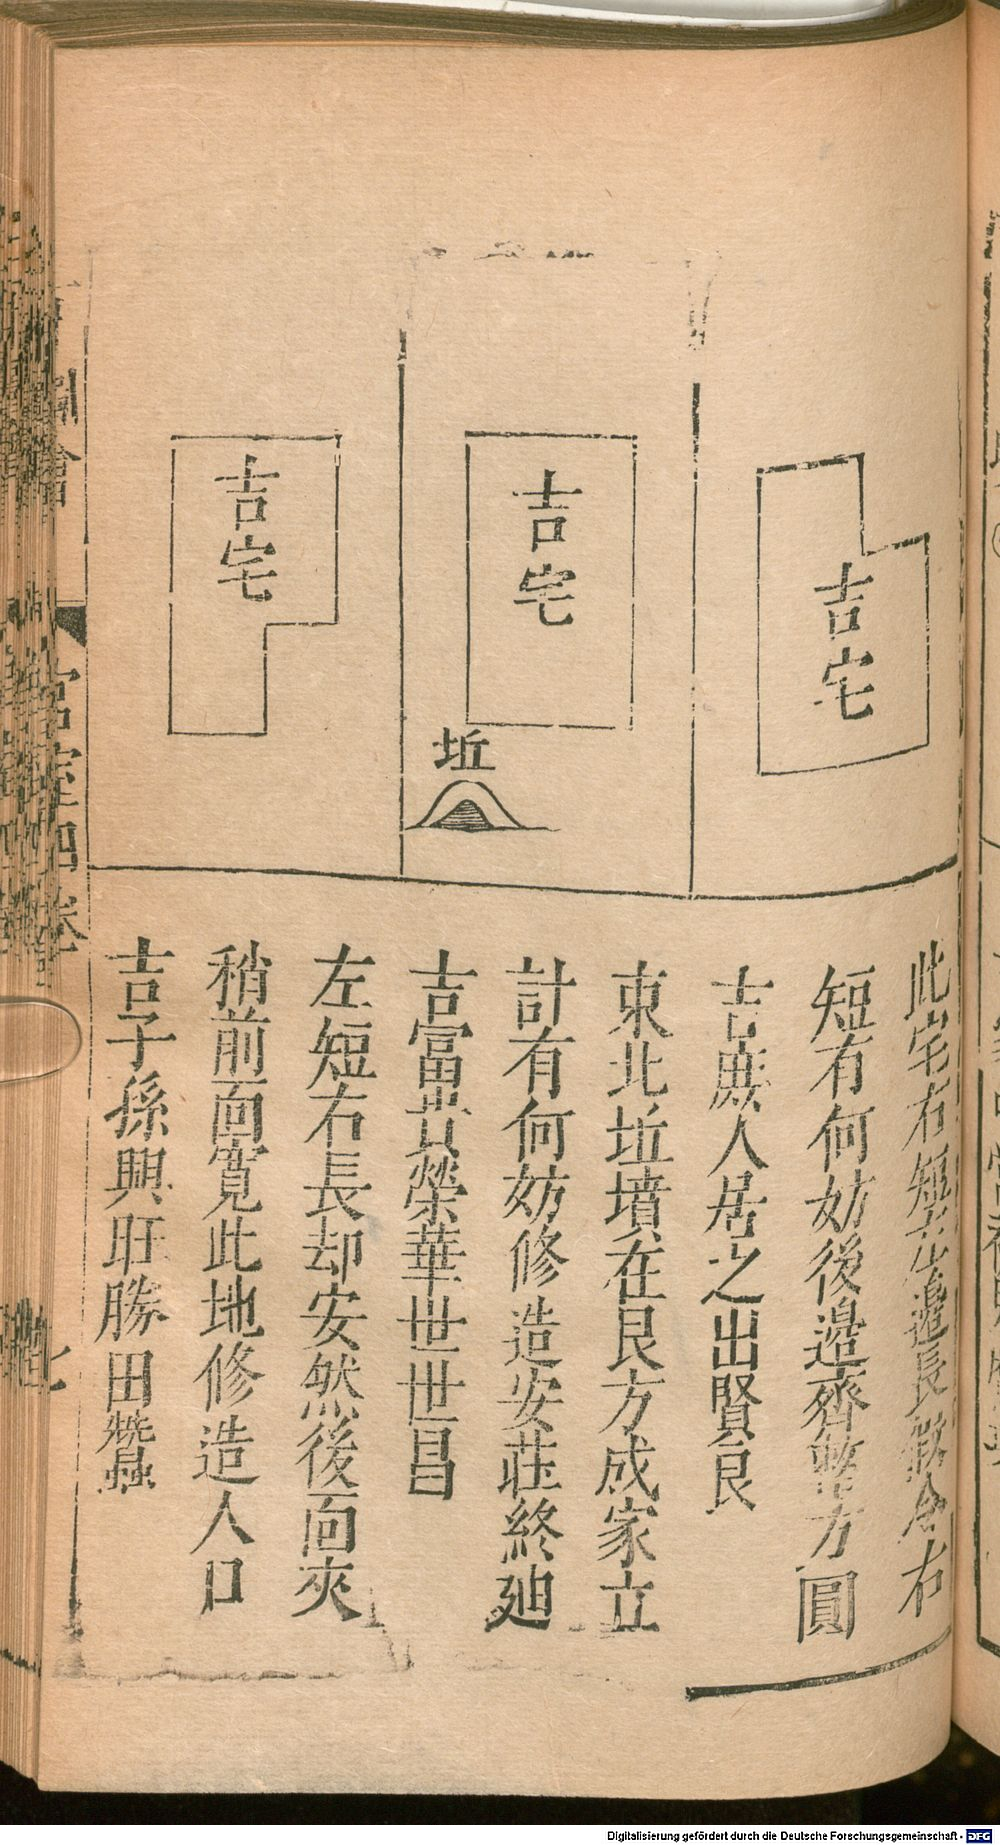 吉宅
吉宅
坵
吉宅
此宅右短左邊長假令右
短有何妨後邊齊整方圓
吉庶人居之出賢良
東北坵墳在艮方成家立
計有何妨修造安莊終廸
吉富貴榮華世世昌
左短右長却安然後面夾
稍前面寬此地修造人口
吉子孫興旺勝田蠶
宮室四卷
七
Digitalisierung gefördert durch die Deutsche Forschungsgemeinschaft - DFG